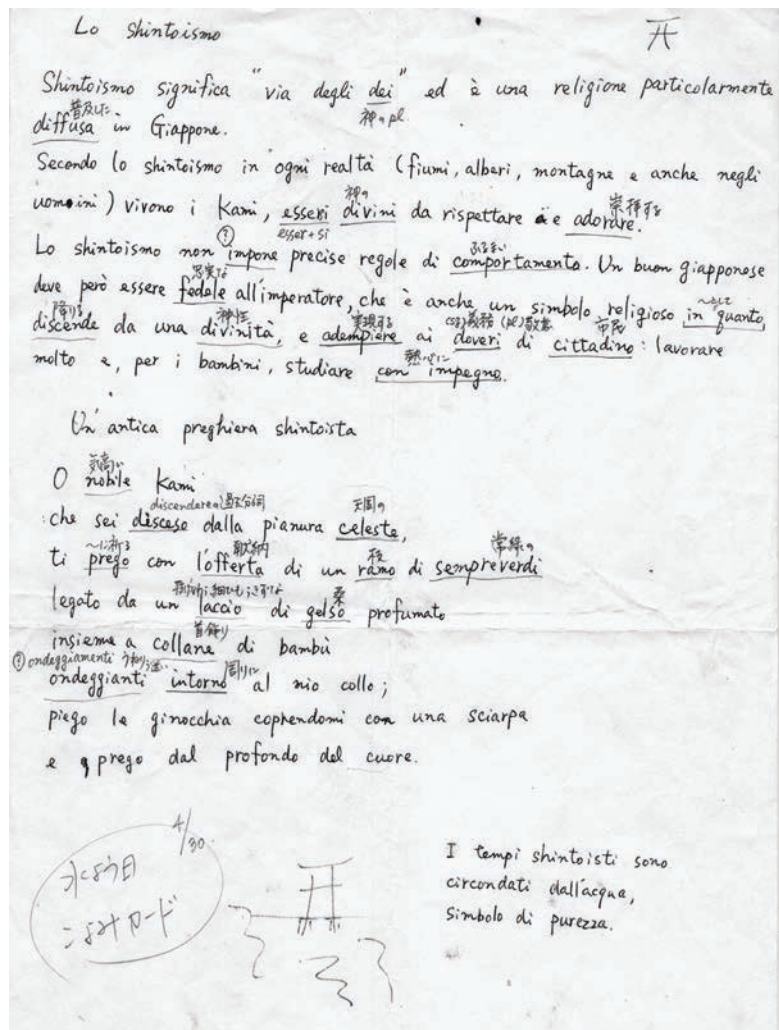 Lo shintoismo
Shintoismo significa "via degli dei" ed è una religione particolarmente
普及した
神の pl.
diffusa in Giappone.
Secondo lo shintoismo in ogni realtà (fiumi, alberi, montagne e anche negli
神の
崇拝する
uomini) vivono i Kami, esseri divini da rispettare e adorare.
esser+si
ふるまい
Lo shintoismo non impone precise regole di comportamento. Un buon giapponese
忠実な
deve però essere fedele all'imperatore, che è anche un simbolo religioso in quanto,
降りる 神性 実現する 義務 (pl) 市民
discende da una divinità, e adempiere ai doveri di cittadino: lavorare
熱心に
molto e, per i bambini, studiare con impegno.
Un'antica preghiera shintoista
気高い
O nobile Kami
discendereの過去分詞 天国の
che sei disceso dalla pianura celeste,
〜に祈る 献納 枝 常緑の
ti prego con l'offerta di un ramo di sempreverdi
桑
legato da un laccio di gelso profumato
首飾り
insieme a collane di bambù
ondeggiamenti 周りに
ondeggianti intorno al mio collo;
piego le ginocchia coprendomi con una sciarpa
e prego dal profondo del cuore.
4/30
水よう日
こよみカード
I tempi shintoisti sono
circondati dall'acqua,
simbolo di purezza.